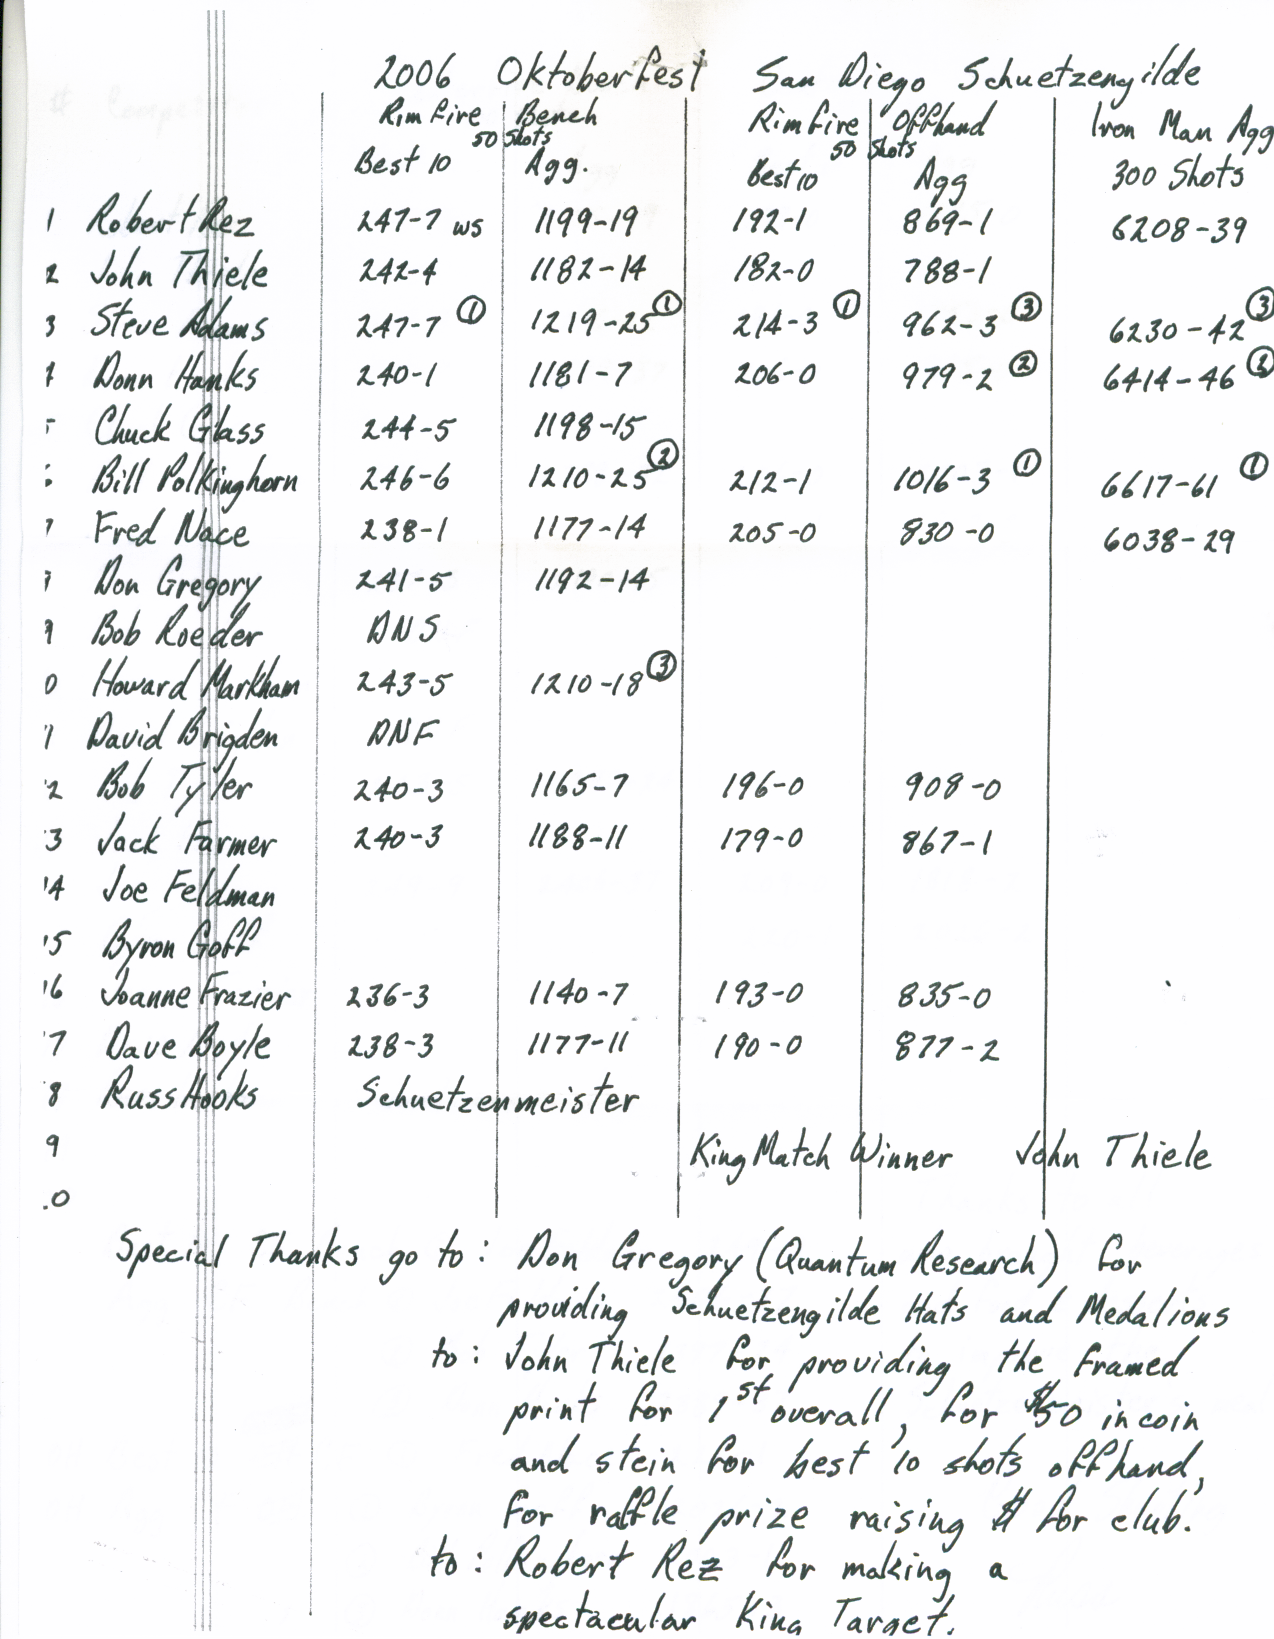 2006 Oktoberfest San Diego Schuetzengilde
Rimfire Bench Rimfire Offhand Iron Man Agg
50 Shots 50 Shots
Best 10 Agg. Best 10 Agg 300 Shots
1 Robert Rez 247-7 ws 1199-19 192-1 869-1 6208-39
2 John Thiele 242-4 1182-14 182-0 788-1
3 Steve Adams 247-7 ① 1219-25 ① 214-3 ① 962-3 ③ 6230-42 ③
4 Donn Hanks 240-1 1181-7 206-0 979-2 ② 6414-46 ②
Chuck Glass 244-5 1198-15
Bill Polkinghorn 246-6 1210-25 ② 212-1 1016-3 ① 6617-61 ①
7 Fred Nace 238-1 1177-14 205-0 830-0 6038-29
Don Gregory 241-5 1192-14
9 Bob Roeder DNS
0 Howard Markham 243-5 1210-18 ③
1 David Brigden DNF
2 Bob Tyler 240-3 1165-7 196-0 908-0
3 Jack Farmer 240-3 1188-11 179-0 867-1
14 Joe Feldman
15 Byron Goff
16 Joanne Frazier 236-3 1140-7 193-0 835-0
7 Dave Boyle 238-3 1177-11 190-0 877-2
8 Russ Hooks Schuetzenmeister
9 King Match Winner John Thiele
0
Special Thanks go to: Don Gregory (Quantum Research) for
providing Schuetzengilde Hats and Medalions
to: John Thiele for providing the framed
print for 1st overall, for $50 in coin
and stein for best 10 shots offhand,
for raffle prize raising $ for club.
to: Robert Rez for making a
spectacular King Target.